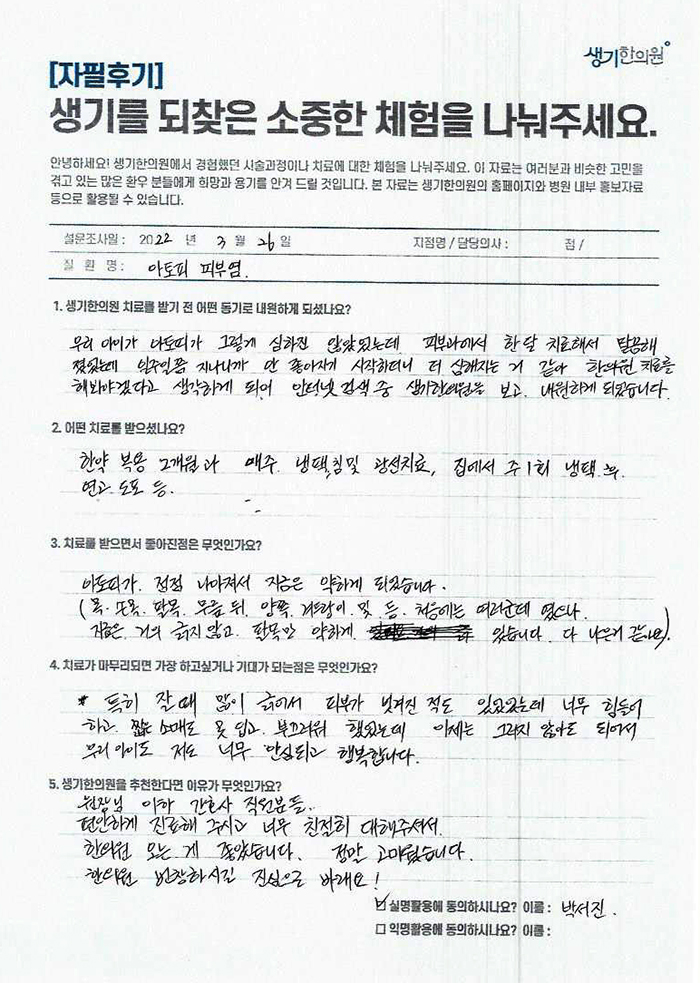 생기한의원
[자필후기]
생기를 되찾은 소중한 체험을 나눠주세요.
안녕하세요! 생기한의원에서 경험했던 시술과정이나 치료에 대한 체험을 나눠주세요. 이 자료는 여러분과 비슷한 고민을
겪고 있는 많은 환우 분들에게 희망과 용기를 안겨 드릴 것입니다. 본 자료는 생기한의원의 홈페이지와 병원 내부 홍보자료
등으로 활용될 수 있습니다.
설문조사일 : 2022 년 3 월 26 일 지점명 / 담당의사 : 점 /
질 환 명 : 아토피 피부염.
1. 생기한의원 치료를 받기 전 어떤 동기로 내원하게 되셨나요?
우리 아이가 아토피가 그렇게 심하진 않았었는데 피부과에서 한달 치료해서
일주일쯤 지나니까 안 좋아지기 시작하더니 더 심해지는 거 같아 한의원 치료를
해봐야겠다고 생각하게 되어 인터넷 검색 중 생기한의원을 보고. 내원하게 되었습니다.
2. 어떤 치료를 받으셨나요?
한약 복용 2개월과 매주 냉택,침및 광선치료, 집에서 주1회 냉택
연고 도포 등.
3. 치료를 받으면서 좋아진점은 무엇인가요?
아토피가. 점점 나아져서 지금은 약하게 되었습니다.
(목. 손목. 팔목. 무릎 뒤. 양쪽. 겨드랑이. 및 등. 처음에는 여러군데 였으나.
지금은 거의 긁지않고. 팔목만 약하게 있습니다. 다 나은거 같아요).
4. 치료가 마무리되면 가장 하고싶거나 기대가 되는점은 무엇인가요?
* 특히 잘때 많이 긁어서 피부가 벗겨진 적도 있었었는데 너무 힘들어
하고. 짧은 소매도 못 입고. 부끄러워 했었는데 이제는 그러지 않아도 되어서
우리아이도 저도 너무 안심되고 행복합니다.
5. 생기한의원을 추천한다면 이유가 무엇인가요?
원장님 이하 간호사 직원분들.
편안하게 진료해 주시고 너무 친절히 대해주셔서.
한의원 오는 게 좋았습니다. 정말 고마웠습니다.
한의원 번창하시길 진심으로 바래요!
☑ 실명활용에 동의하시나요? 이름 : 박서진.
□ 익명활용에 동의하시나요? 이름 :